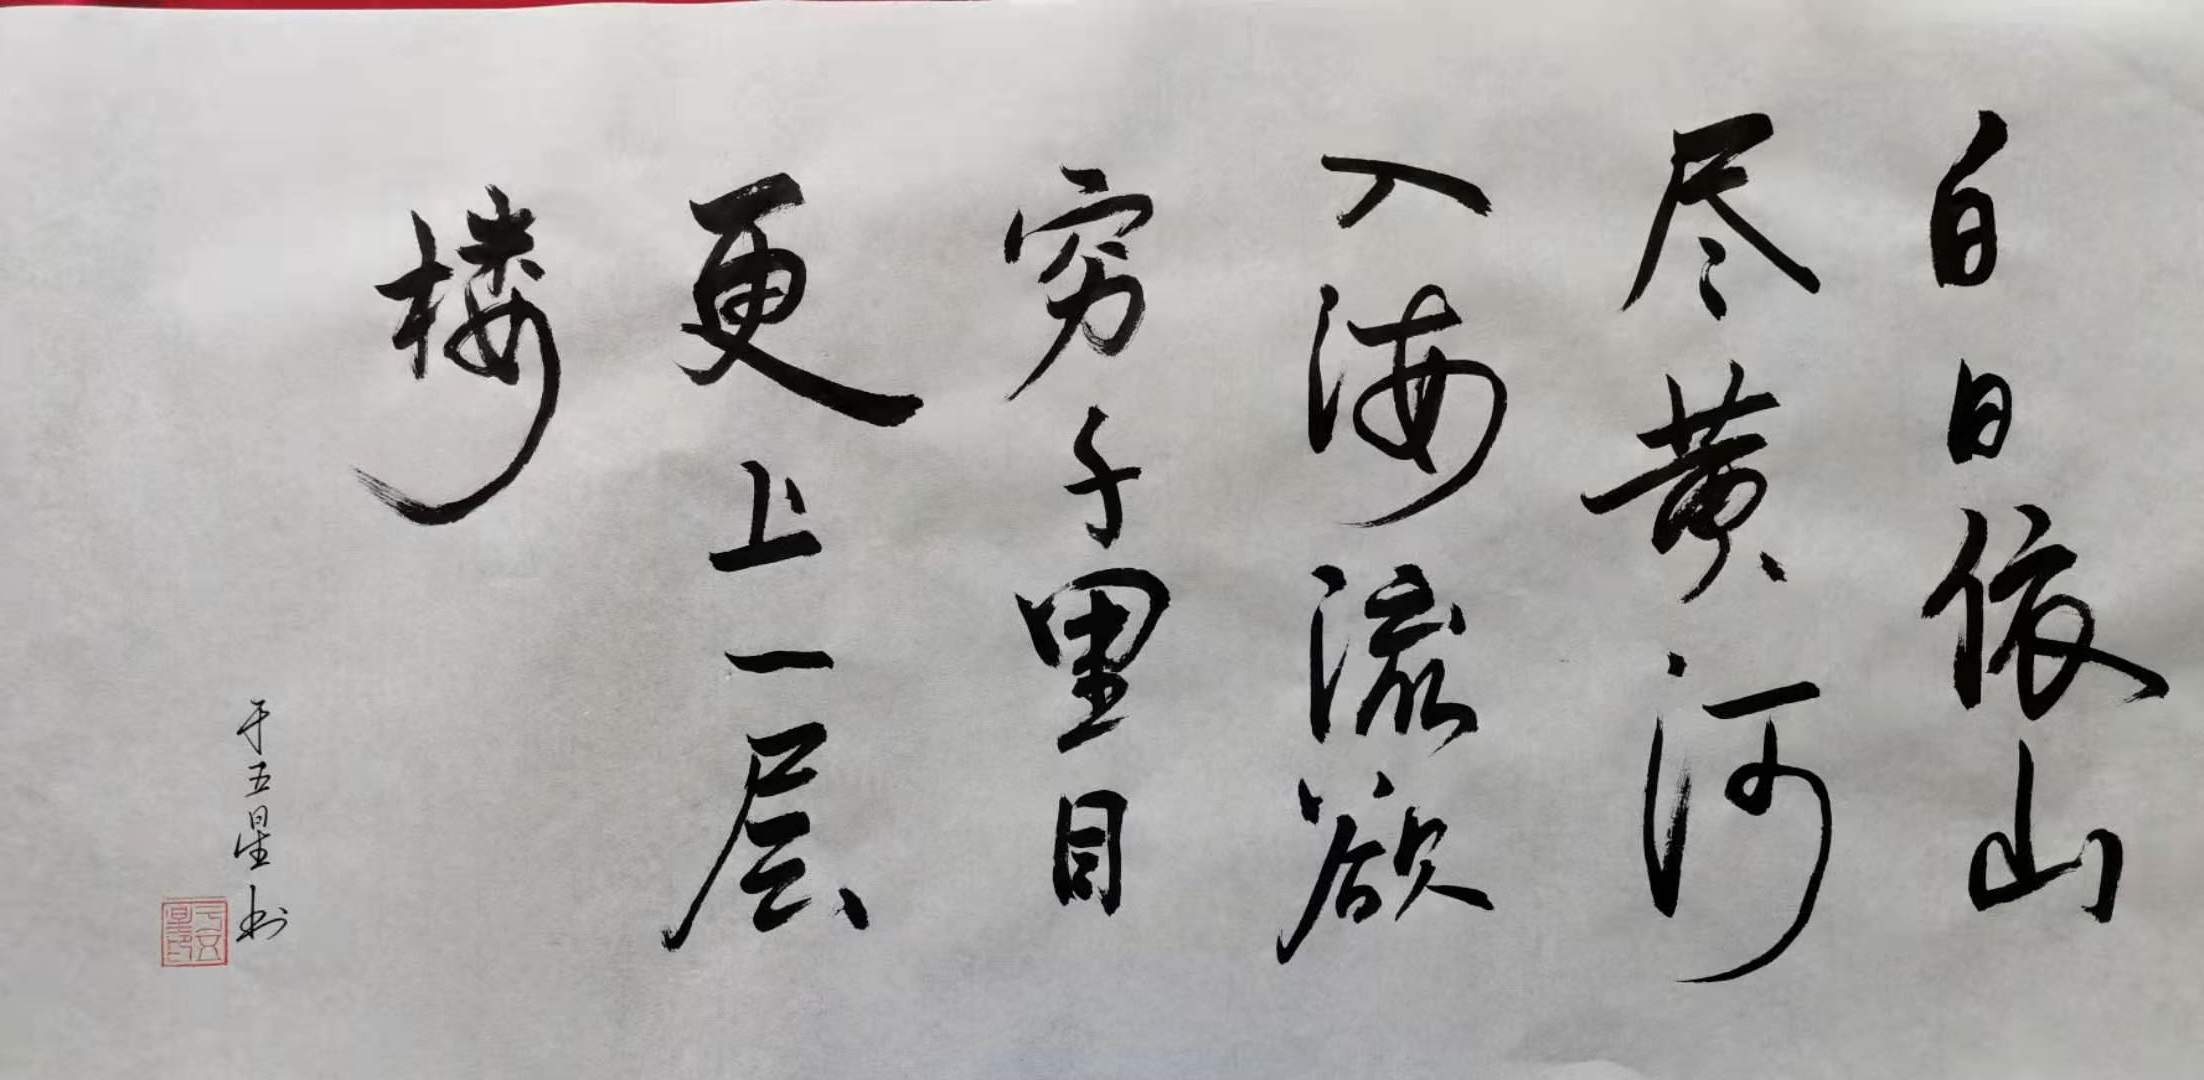 白日依山
尽黄河
入海流欲
穷千里目
更上一层
楼
于五星书
于五星印